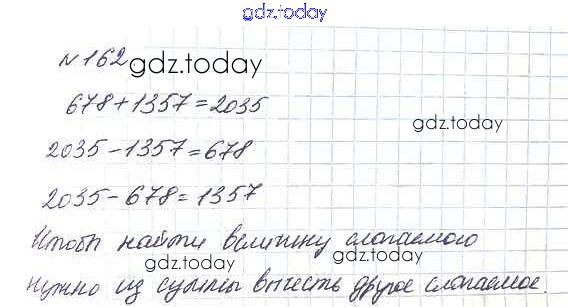 gdz.today
№162 gdz.today
678+1357=2035
gdz.today
2035-1357=678
2035-678=1357
Чтобы найти величину слагаемого
gdz.today gdz.today
нужно из суммы вычесть другое слагаемое.